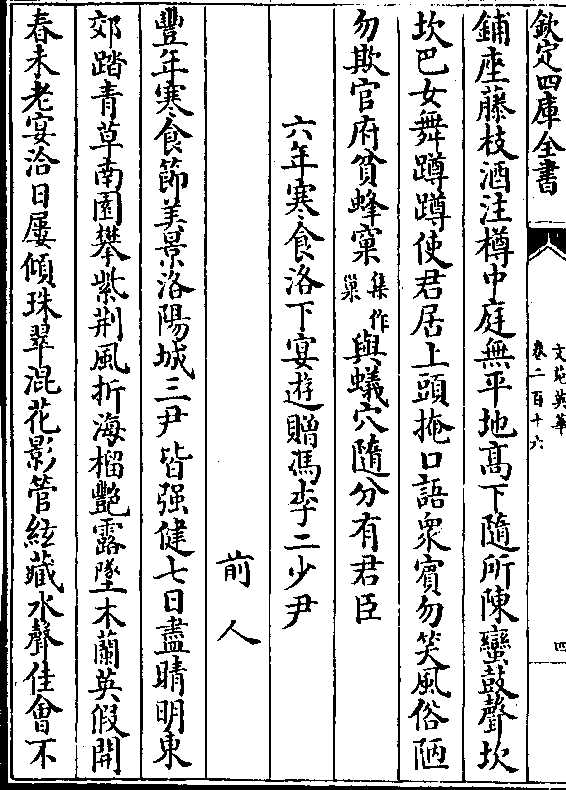 欽定四庫全書
文苑英華
卷二百十六
四
鋪座藤枝酒注樽中庭無平地高下隨所陳蠻鼓聲坎
坎巴女舞蹲蹲使君居上頭掩口語衆賓勿笑風俗陋
勿欺官府貧蜂窠集作巢與蟻穴隨分有君臣
六年寒食洛下宴遊贈馮李二少尹
前人
豐年寒食節美景洛陽城三尹皆强健七日盡晴明東
郊踏青草南園攀紫荆風折海榴艷露墜木蘭英假開
春未老宴洽日屢傾珠翠混花影管絃藏水聲佳會不